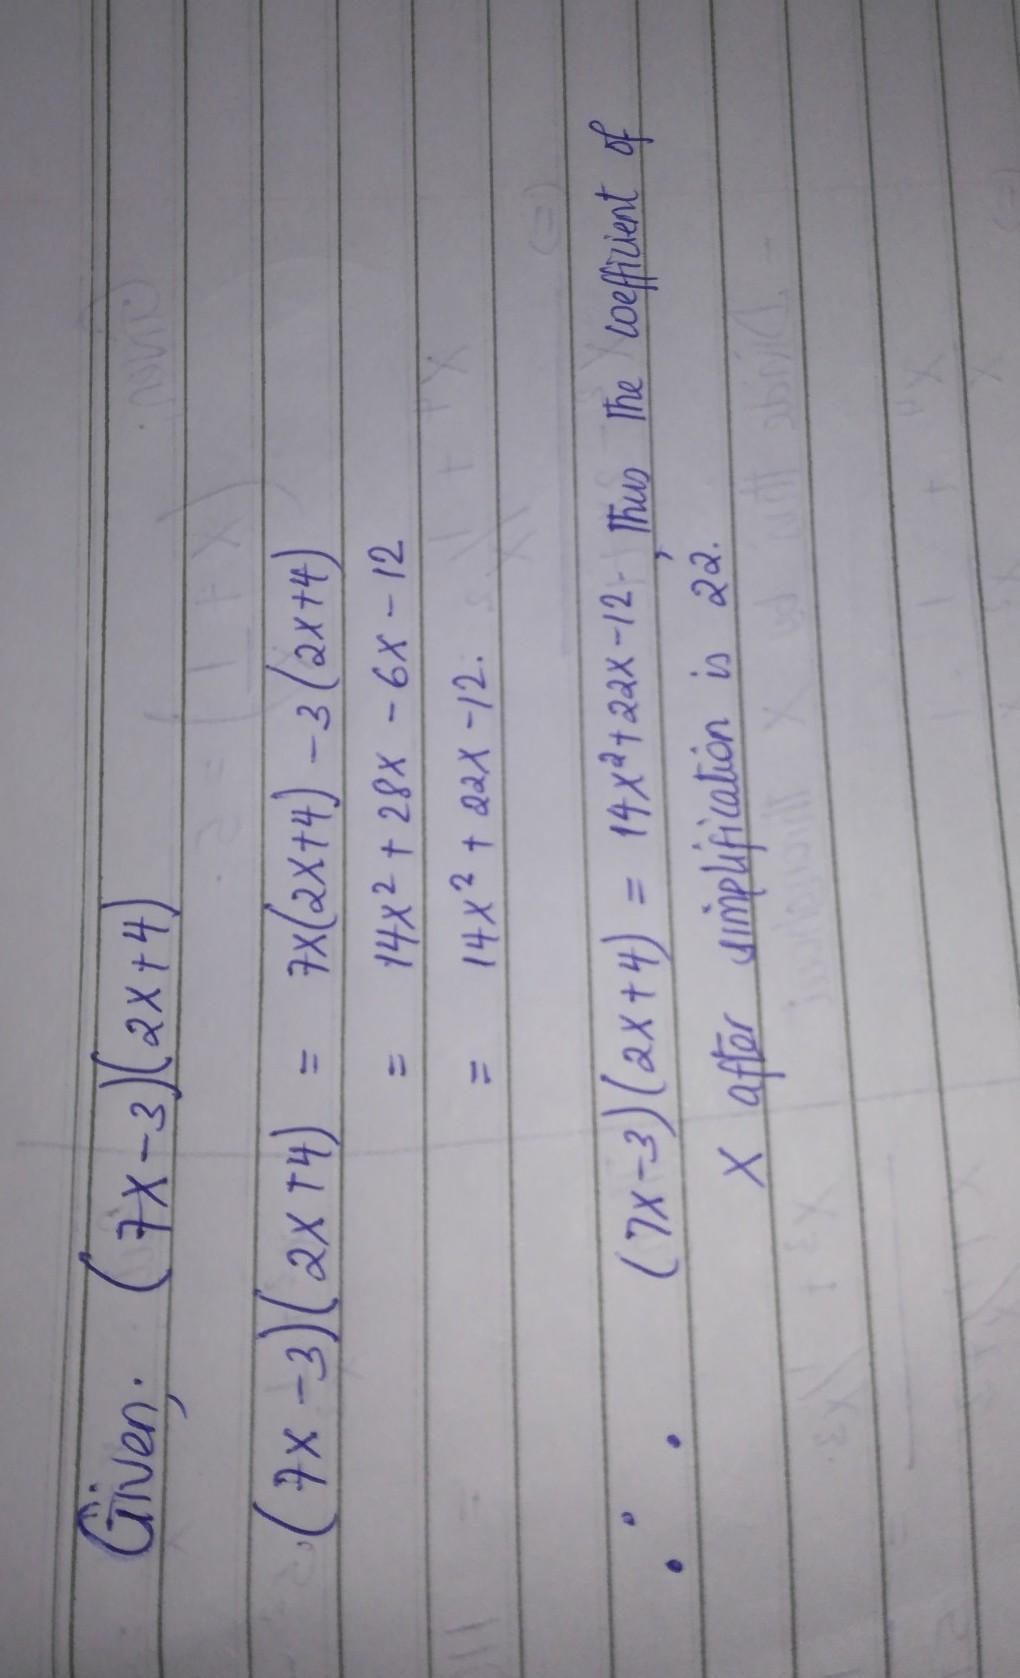 Given; (7x-3)(2x+4)
(7x-3)(2x+4) = 7x(2x+4) -3(2x+4)
= 14x² + 28x - 6x - 12
= 14x² + 22x - 12.
∴ (7x-3)(2x+4) = 14x²+22x-12; Thus the coefficient of
x after simplification is 22.